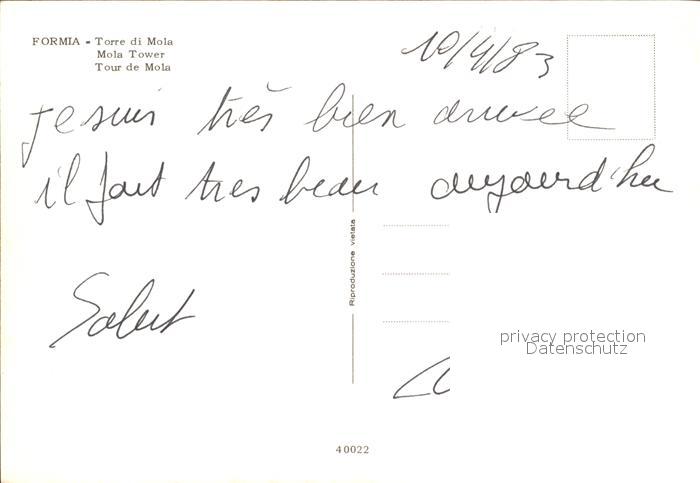 FORMIA - Torre di Mola
Mola Tower
Tour de Mola
10/4/83
Je suis très bien arrivée
il fait tres beau aujourd'hui
Riproduzione vietata
Salut
privacy protection
Datenschutz
40022